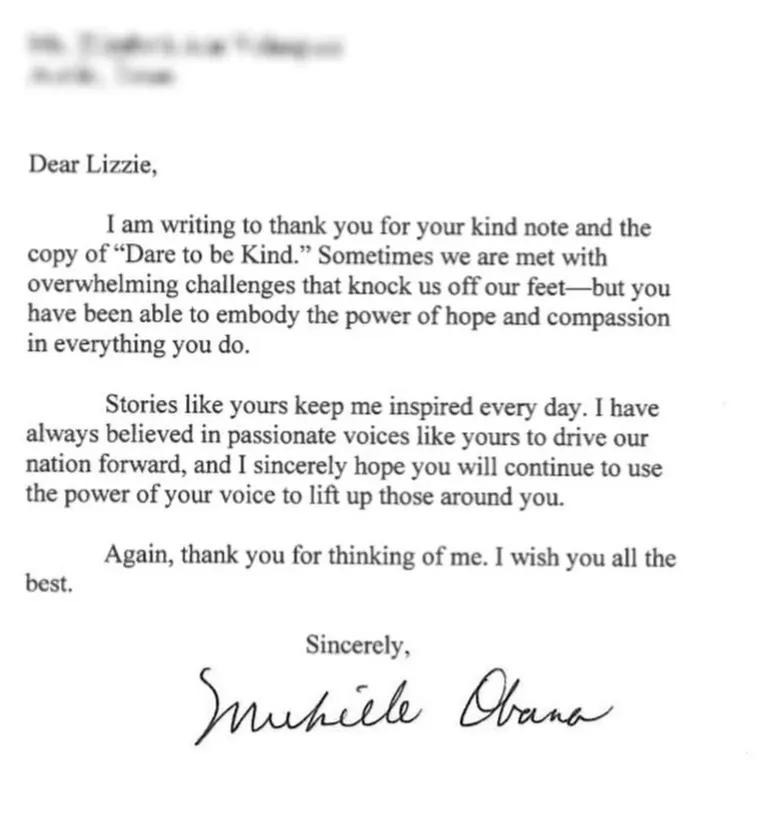 Dear Lizzie,
I am writing to thank you for your kind note and the
copy of “Dare to be Kind.” Sometimes we are met with
overwhelming challenges that knock us off our feet—but you
have been able to embody the power of hope and compassion
in everything you do.
Stories like yours keep me inspired every day. I have
always believed in passionate voices like yours to drive our
nation forward, and I sincerely hope you will continue to use
the power of your voice to lift up those around you.
Again, thank you for thinking of me. I wish you all the
best.
Sincerely,
Michelle Obama